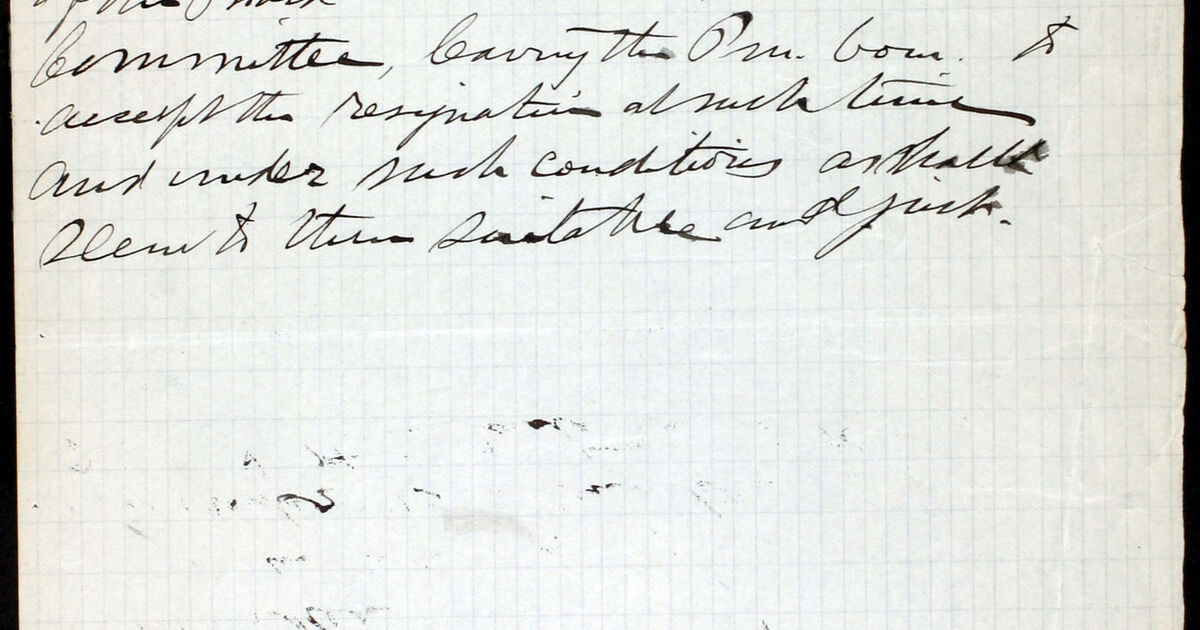 of the
Committee, leaving the Pru. Com. to
accept the resignation at such time
and under such conditions as shall
seem to them suitable and just.